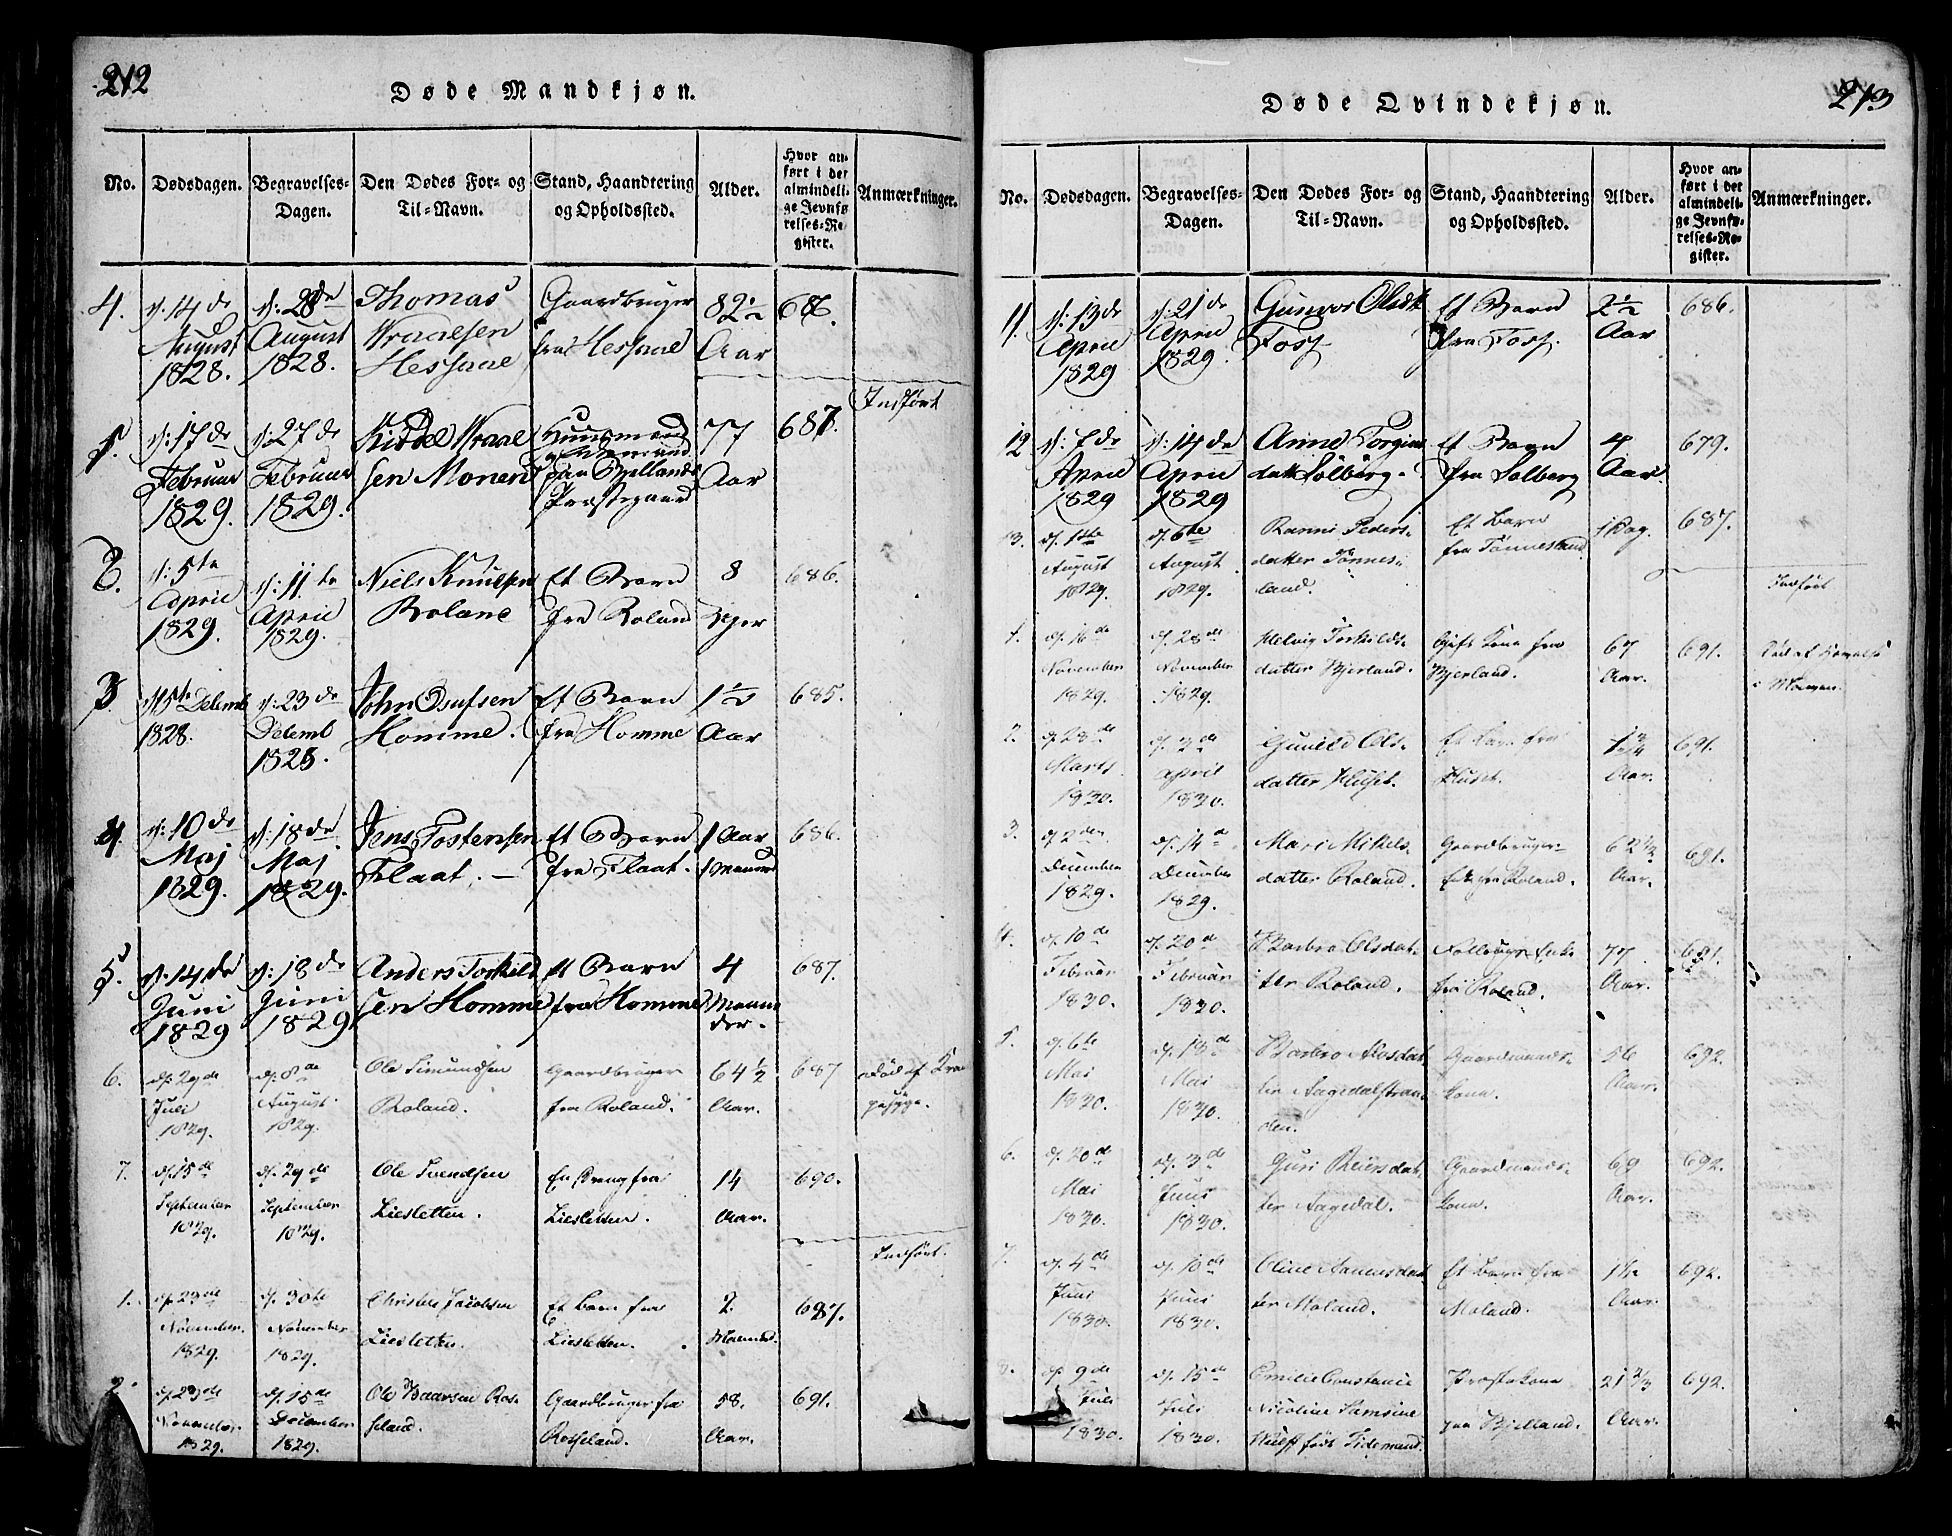 212
Døde Mandkjøn.
No. Dødsdagen. Begravelses-Dagen. Den Dødes For- og Til-Navn. Stand, Haandtering og Opholdssted. Alder. Hvor anført i det almindelige Jevnførelses-Register. Anmærkninger.
4. d: 14de August 1828. d: 28de August 1828. Thomas Wraalsen Hessaae Gaardbruger fra Hessaae 82 1/2 Aar 686.
Indført
1. d: 17de Februar 1829. d: 27de Februar 1829. Kiddel Wraalsen Monen Huusmand paa Bjellands Præstegaard 77 Aar 687.
2. d: 5te April 1829. d: 11te April 1829. Niels Knudsen Roland Et Barn fra Roland 8 Uger 686.
3 d: 15te Decemb 1828. d: 23de Decemb 1828. John Osufsen Homme. Et Barn fra Homme 1 1/2 Aar 685.
4. d: 10de Maj 1829. d: 18de Maj 1829. Jens Tostensen Flaat. Et Barn fra Flaat. 1 Aar 1 Maaned 686.
5. d: 14de Juni 1829 d: 18de Juni 1829 Anders Torkildsen Homme Et Barn fra Homme 4 Maaneder. 687.
6. d. 29de Juli 1829. d. 8de August 1829. Ole Simundsen Roland. Gaardbruger fra Roland. 64 1/2 Aar. 687 Død af
7. d. 15de September 1829. d. 29de September 1829. Ole Svendsen Liesletten. En Dreng fra Liesletten. 14 Aar. 690.
Indført.
1. d. 23de November. 1829. d. 30te November 1829. Christen Jacobsen Liesletten. Et Barn fra Liesletten. 2. Maaned. 687.
2. d. 23de November. 1829. d. 15de December 1829. Ole Baarsen Rosseland. Gaardbruger fra Rosseland. 58. Aar. 691.
213
Døde Qvindekjøn.
No. Dødsdagen. Begravelses-Dagen. Den Dødes For- og Til-Navn. Stand, Haandtering og Opholdssted. Alder. Hvor anført i det almindelige Jevnførelses-Register. Anmærkninger.
11. d: 13de April 1829 d: 21de April 1829. Gunvor Olsdt Foss Et Barn fra Foss. 2 1/2 Aar 686.
12 d: 7de April 1829 d: 14de April 1829 Anne Torgiusdatt Solberg. Et Barn fra Solberg 4 Aar 679.
13. d. 1ste August 1829. d. 6te August 1829. Ranni Pedersdatter Tønnesland. Et Barn fra Tønnesland 1 Dag. 687.
Indført
1. d. 16de November 1829. d. 28de November 1829. Helvig Torkildsdatter Bjerland. Gift Kone fra Bjerland. 67 Aar. 691.
2. d. 23de Marts 1830. d. 3de April 1830. Gunild Olsdatter Huset. Et Barn fra Huset. Aar. 691.
3. d. 2den December 1829. d. 14de December 1829. Mari Mikelsdatter Roland. Gaardbruger- fra Roland. 62 1/2 Aar. 691.
4. d. 10de Februar 1830. d. 20de Februar 1830. Barbro Olsdatter Roland. fra Roland. 77 Aar. 691.
5. d. 6te Mai 1830. d. 15de Mai 1830. Barbro Aasdatter Aagedalstranden. Gaardmands-kone. 56 Aar. 692.
6. d. 20de Mai 1830. d. 3de Juni 1830. Guri Reiersdatter Aagedal. Gaardmands-kone. 69 Aar. 692.
7. d. 4de Juni 1830. d. 10de Juni 1830. Oline Aanensdatter Moland. Et Barn fra Moland. 1 1/2 Aar. 692.
8. d. 9de Juli 1830. d. 15de Juli 1830. Emilie Constance Nicoline Samsine Wulff født Tidemand. Præstekone paa Bjelland. 21 2/3 Aar. 692.